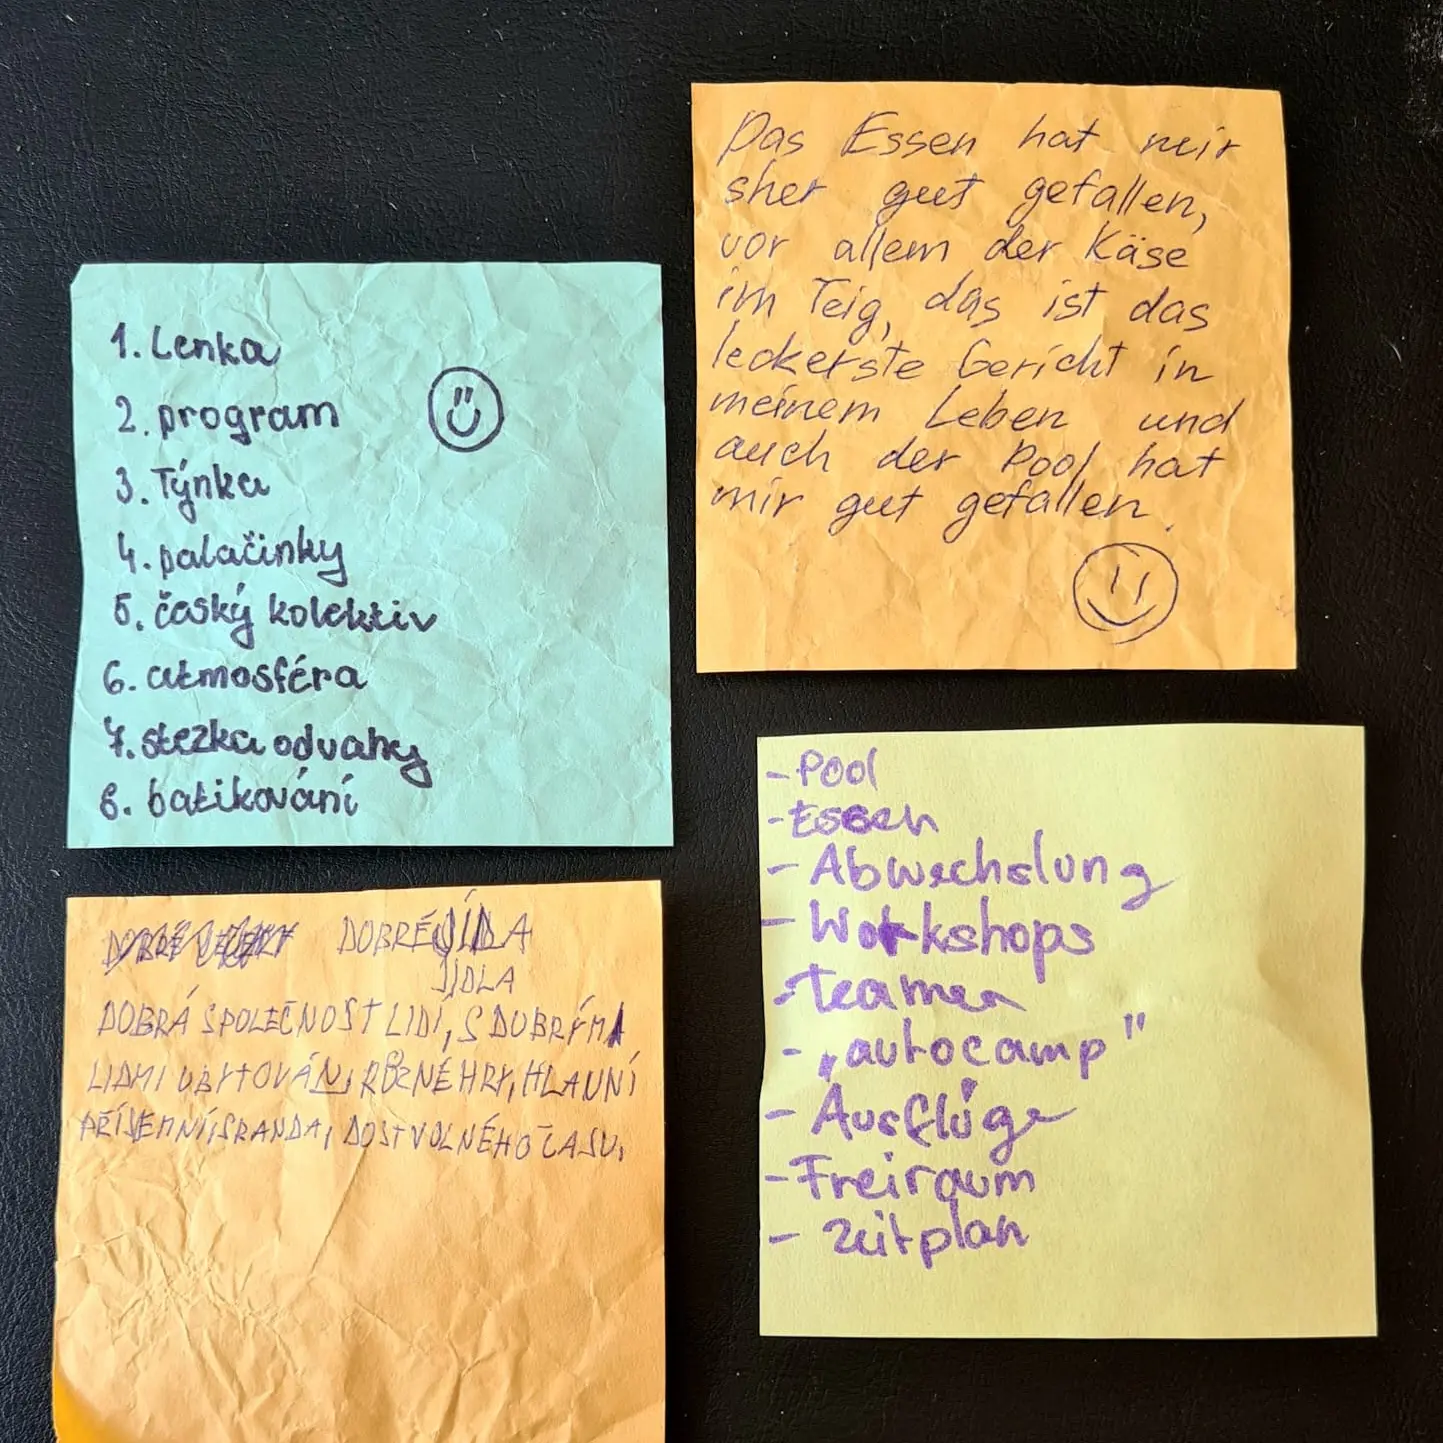 1. Lenka
2. program
3. Týnka
4. palačinky
5. český kolektiv
6. atmosféra
7. stezka odvahy
8. batikování
Das Essen hat mir
sher gut gefallen,
vor allem der Käse
im Teig, das ist das
leckerste Gericht in
meinem Leben und
auch der Pool hat
mir gut gefallen.
DOBRÉ JÍDLA
JÍDLA
DOBRÁ SPOLEČNOST LIDÍ, S DOBRÝMA
LIDMI UBYTOVÁNÍ, RŮZNÉ HRY, HLAVNÍ
PŘÍJEMNÍ, SRANDA, DOST VOLNÉHO ČASU.
- Pool
- Essen
- Abwechslung
- Workshops
- Teamer
- „autocamp"
- Ausflüge
- Freiraum
- Zeitplan